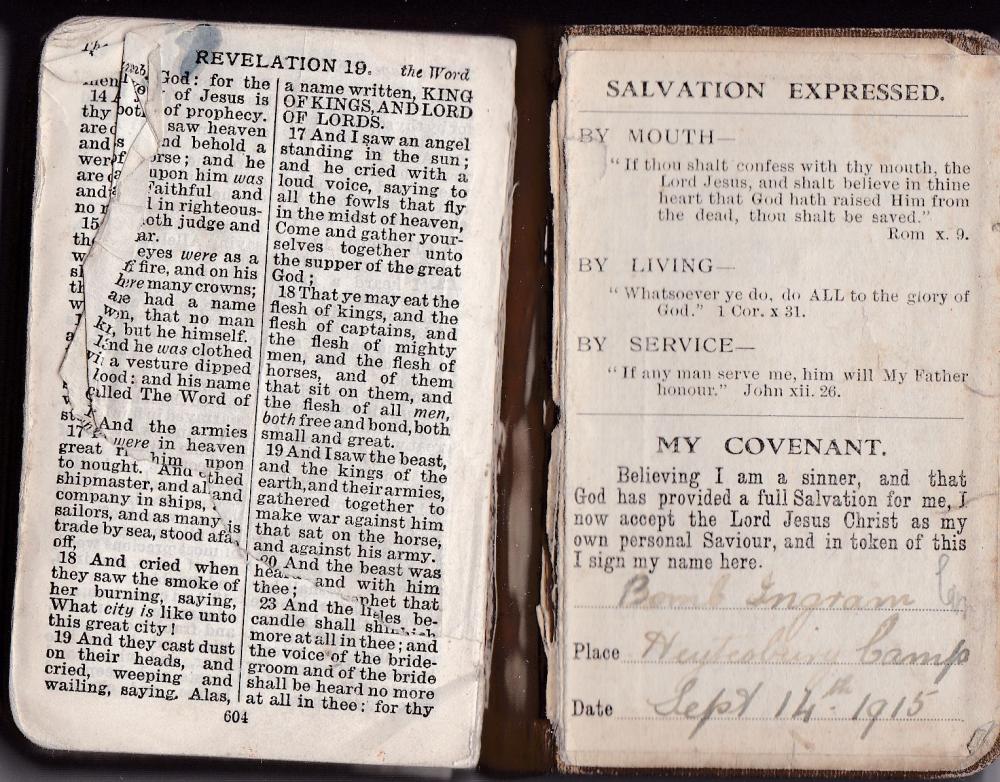 REVELATION 19.
the Word
God: for the
14
of Jesus is
thy
of prophecy.
saw heaven
and
behold a
and he
upon him was
Faithful and
in righteous-
judge and
15
eyes were as a
fire, and on his
many crowns;
had a name
that no man
but he himself.
he was clothed
a vesture dipped
and his name
The Word of
And the armies
17
were in heaven
great
him upon
to nought. And
shipmaster, and
and
company in ships,
sailors, and as many
trade by sea, stood
off,
18 And cried when
they saw the smoke of
her burning, saying,
What city is like unto
this great city!
19 And they cast dust
on their heads, and
cried, weeping and
wailing, saying, Alas,
a name written, KING
OF KINGS, AND LORD
OF LORDS.
17 And I saw an angel
standing in the sun;
and he cried with a
loud voice, saying to
all the fowls that fly
in the midst of heaven,
Come and gather your-
selves together unto
the supper of the great
God;
18 That ye may eat the
flesh of kings, and the
flesh of captains, and
the flesh of mighty
men, and the flesh of
horses, and of them
that sit on them, and
the flesh of all men,
both free and bond, both
small and great.
19 And I saw the beast,
and the kings of the
earth, and their armies,
gathered together to
make war against him
that sat on the horse,
and against his army.
20 And the beast was
and with him
thee;
that
23 And the
be-
candle shall
more at all in thee; and
the voice of the bride-
groom and of the bride
shall be heard no more
at all in thee: for thy
604
SALVATION EXPRESSED.
BY MOUTH—
"If thou shalt confess with thy mouth, the
Lord Jesus, and shalt believe in thine
heart that God hath raised Him from
the dead, thou shalt be saved."
Rom x. 9.
BY LIVING—
"Whatsoever ye do, do ALL to the glory of
God." 1 Cor. x 31.
BY SERVICE—
"If any man serve me, him will My Father
honour." John xii. 26.
MY COVENANT.
Believing I am a sinner, and that
God has provided a full Salvation for me, I
now accept the Lord Jesus Christ as my
own personal Saviour, and in token of this
I sign my name here.
Bomb Ingram
Place Heytesbury Camp
Date Sept 14th. 1915